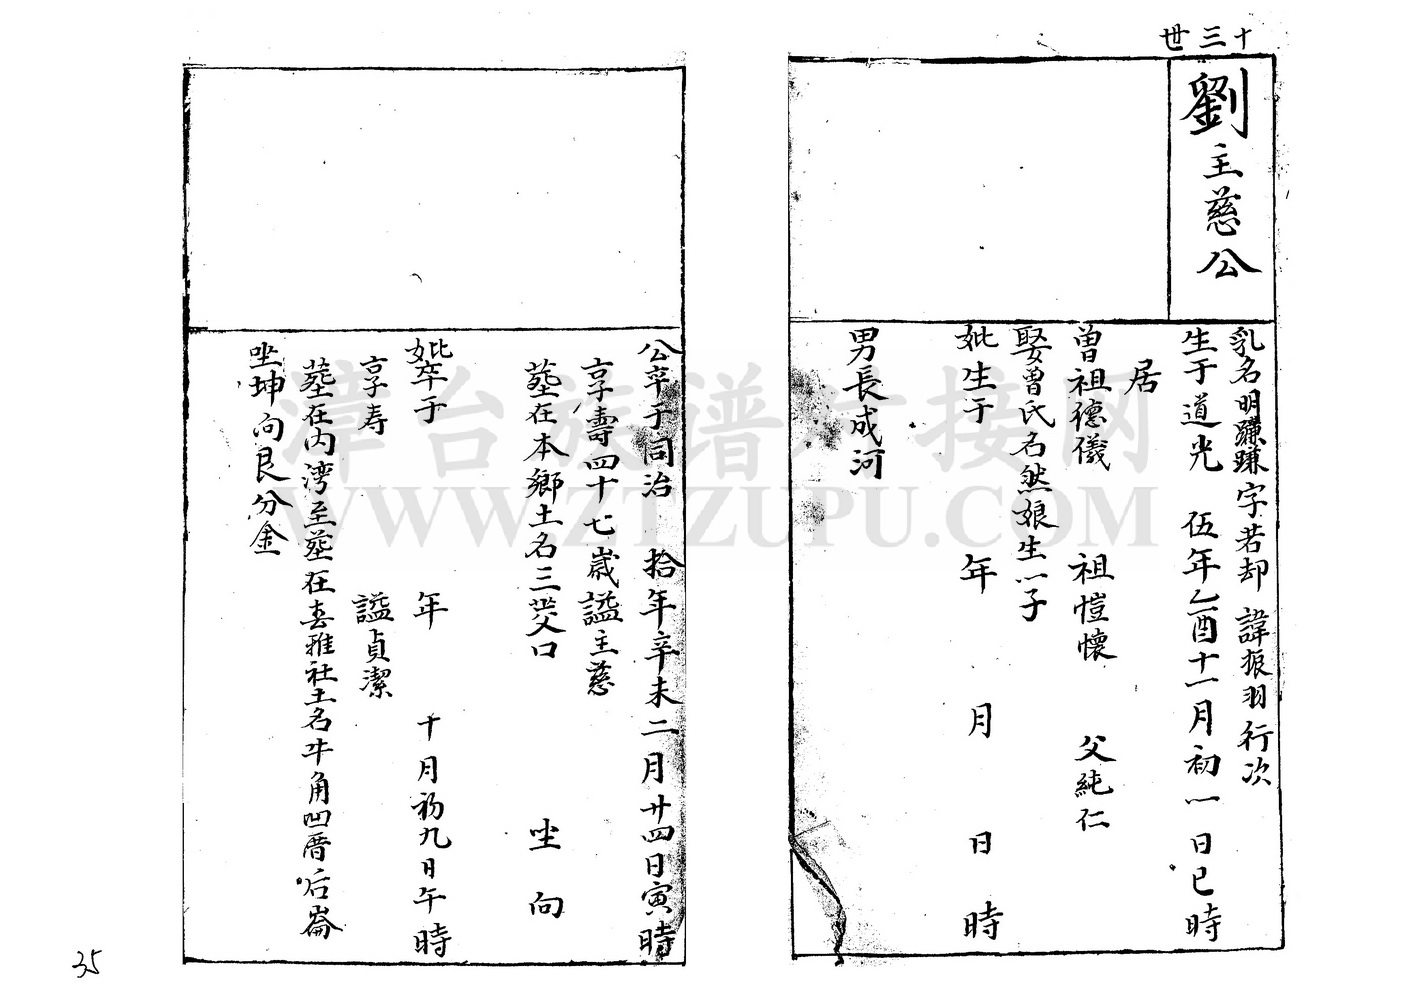 十三世
劉主慈公
乳名明賺賺字若却 諱振羽行次
生于道光 伍年乙酉十一月初一日巳時
居
曾祖德儀 祖愷懷 父純仁
娶曾氏名然娘生一子
妣生于 年 月 日 時
男長成河
公卒于同治 拾年辛未二月廿四日寅時
享壽四十七歲諡主慈
塟在本鄉土名三㸚口 坐 向
妣卒于 年 十月初九日午時
享寿 諡貞潔
塟在内湾至塟在春雅社土名牛角凹厝后崙
坐坤向艮分金
35
漳台族谱对接网
WWW.ZTZUPU.COM